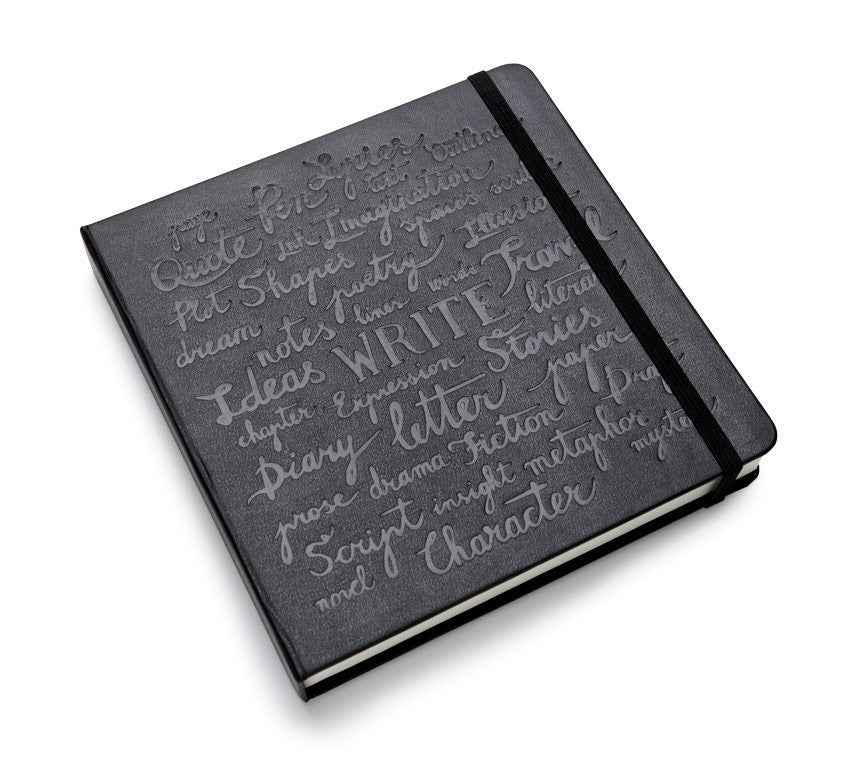 Lyrics
page Pen text Outline
Quote Ink Imagination scribe
Plot Shapes spaces
dream poetry Illusion
notes lines words Travel
Ideas WRITE literat
chapter Expression Stories
Diary letter paper
prose drama Fiction Draft
Script insight metaphor myste
novel Character